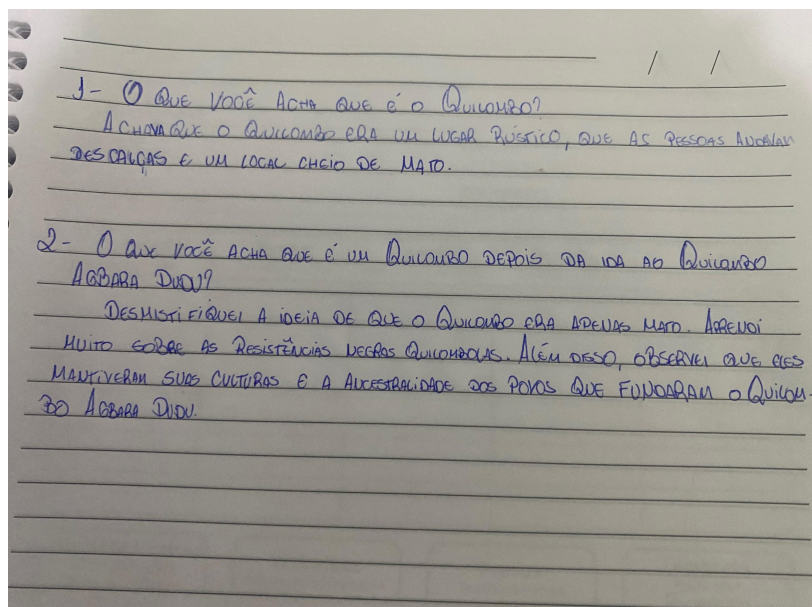 / /
1- O QUE VOCÊ ACHA QUE É O QUILOMBO?
ACHAVA QUE O QUILOMBO ERA UM LUGAR RÚSTICO, QUE AS PESSOAS ANDAVAM
DESCALÇAS E UM LOCAL CHEIO DE MATO.
2- O QUE VOCÊ ACHA QUE É UM QUILOMBO DEPOIS DA IDA AO QUILOMBO
AGBARA DUDU?
DESMISTIFIQUEI A IDEIA DE QUE O QUILOMBO ERA APENAS MATO. APRENDI
MUITO SOBRE AS RESISTÊNCIAS NEGRAS QUILOMBOLAS. ALÉM DISSO, OBSERVEI QUE ELES
MANTIVERAM SUAS CULTURAS E A ANCESTRALIDADE DOS POVOS QUE FUNDARAM O QUILOM-
BO AGBARA DUDU.